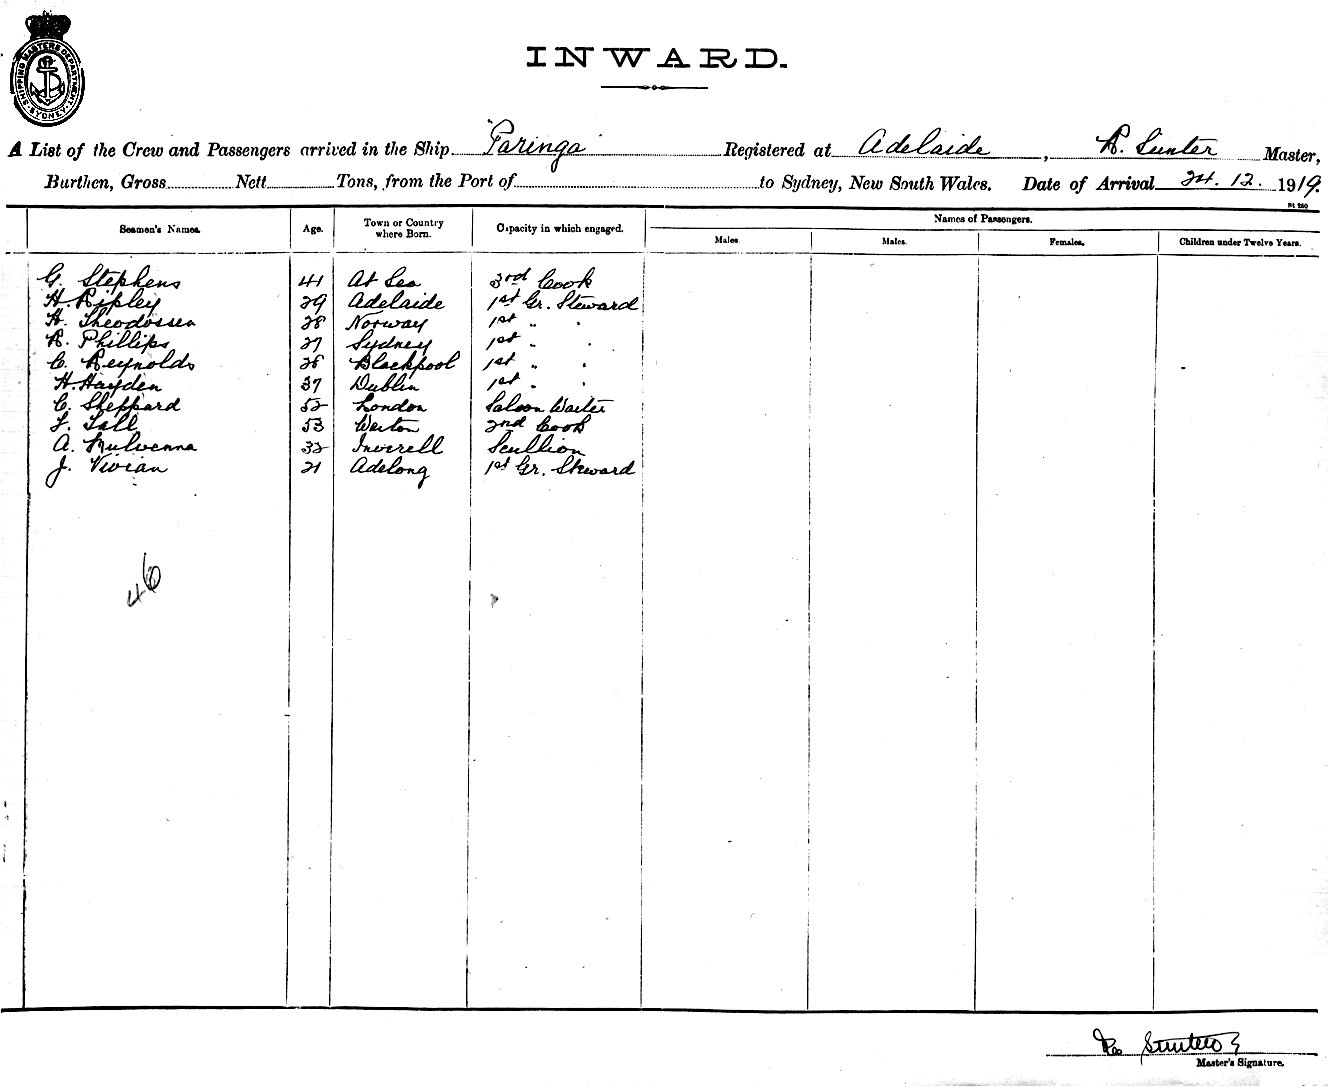 SHIPPING MASTERS DEPARTMENT SYDNEY
INWARD.
A List of the Crew and Passengers arrived in the Ship "Paringa" Registered at Adelaide, R. Sunter Master,
Burthen, Gross Nett Tons, from the Port of to Sydney, New South Wales. Date of Arrival 24.12.1919.
Seamen's Names. Age. Town or Country where Born. Capacity in which engaged. Names of Passengers.
Males. Males. Females. Children under Twelve Years.
G. Stephens 41 At Sea 3rd Cook
H. Ripley 29 Adelaide 1st Gr. Steward
H. Theodossen 28 Norway 1st " "
R. Phillips 27 Sydney 1st " "
C. Reynolds 28 Blackpool 1st " "
H. Hayden 37 Dublin 1st " "
C. Sheppard 52 London Saloon Waiter
F. Tall 53 2nd Cook
A. Mulvenna 32 Inverell Scullion
J. Vivian 21 Adelong 1st Gr. Steward
46
Sunter
Master's Signature.